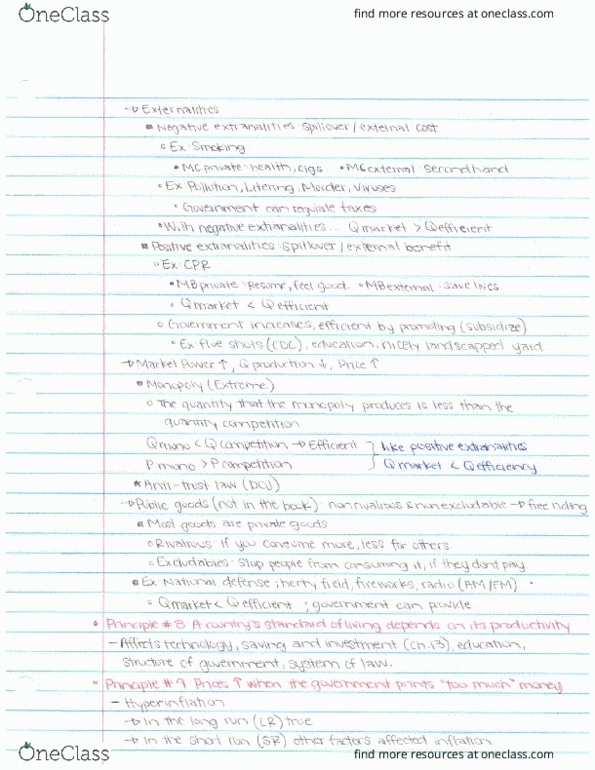 OneClass
find more resources at oneclass.com
→ Externalities
▪ Negative extranalities: Spillover / external cost
◦ Ex: Smoking
• MC private: health, cigs • MC external: Secondhand
◦ Ex: Pollution, Litering, Murder, Viruses
◦ Government can regulate taxes
• With negative extranalities... Q market > Q efficient
▪ Positive extranalities: Spillover / external benefit
◦ Ex: CPR
• MB private: Resume, feel good. • MB external: save lives
◦ Q market < Q efficient
◦ Government increases, efficient by promoting (subsidize)
◦ Ex: flue shots (CDC), education, nicely landscapped yard.
→ Market Power ↑, Q production ↓, Price ↑
▪ Monopoly (Extreme)
◦ The quantity that the monopoly produces is less than the
quantity competition
Q mono < Q competition → Efficient } like positive extranalities
P mono > P competition } Q market < Q efficiency
* Anti-trust law (DOJ)
→ Public goods (not in the book) nonrivalrous & nonexcludable → free riding
▪ Most goods are private goods
◦ Rivalrous: If you consume more, less for others
◦ Excludables: Stop people from consuming it, if they dont pay
▪ Ex: National defense; herty field, fireworks, radio (AM/FM)
◦ Q market < Q efficient; government can provide
◦ Principle #8 A country's standard of living depends on its productivity
- Affects technology, saving and investment (ch.13), education,
structure of government, system of law.
◦ Principle #9 Prices ↑ when the government prints "too much" money
- Hyperinflation
→ In the long run (LR) true
→ In the short run (SR) other factors affected inflation
OneClass
find more resources at oneclass.com